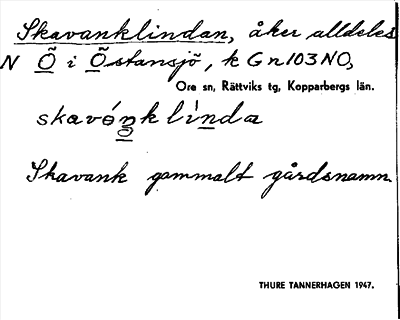 Skavanklindan, åker alldeles
N Ö i Östansjö, k Gn103NO,
Ore sn, Rättviks tg, Kopparbergs län.
skavánklìnda
Ö
Skavank gammalt gårdsnamn.
THURE TANNERHAGEN 1947.